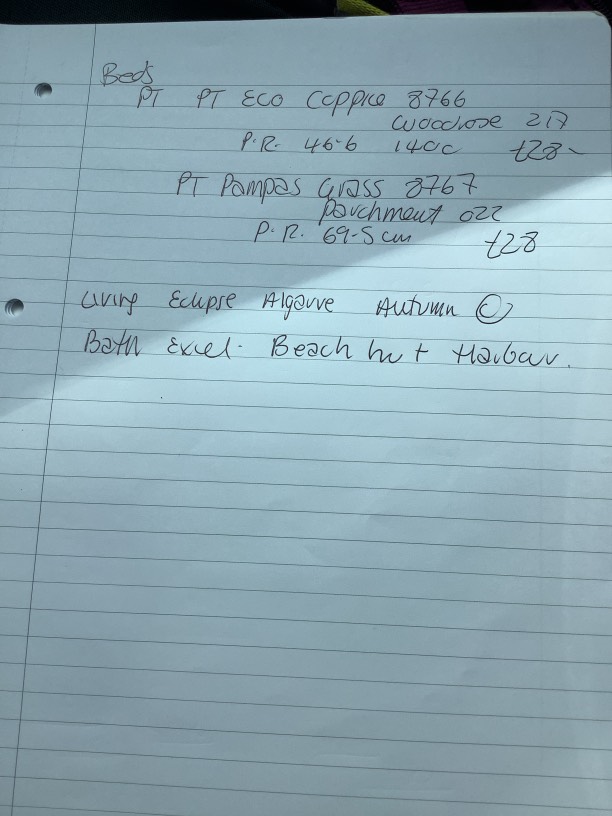 Beds
PT PT Eco Coppice 8766
Woodrose 217
P.R. 46.6 140c £28-
PT Pampas Grass 8767
Parchment 022
P.R. 69.5cm £28
Living Eclipse Algarve Autumn ©
Bath Excel. Beach hut Harbour.